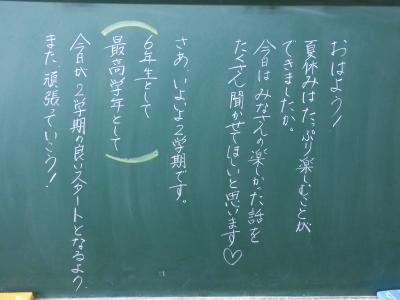 おはよう！
夏休みはたっぷり楽しむことが
できましたか。
今日はみなさんの楽しかった話を
たくさん聞かせてほしいと思います♡
さあ、いよいよ2学期です。
6年生として
最高学年として
今日が2学期の良いスタートとなるよう、
また、頑張っていこう！